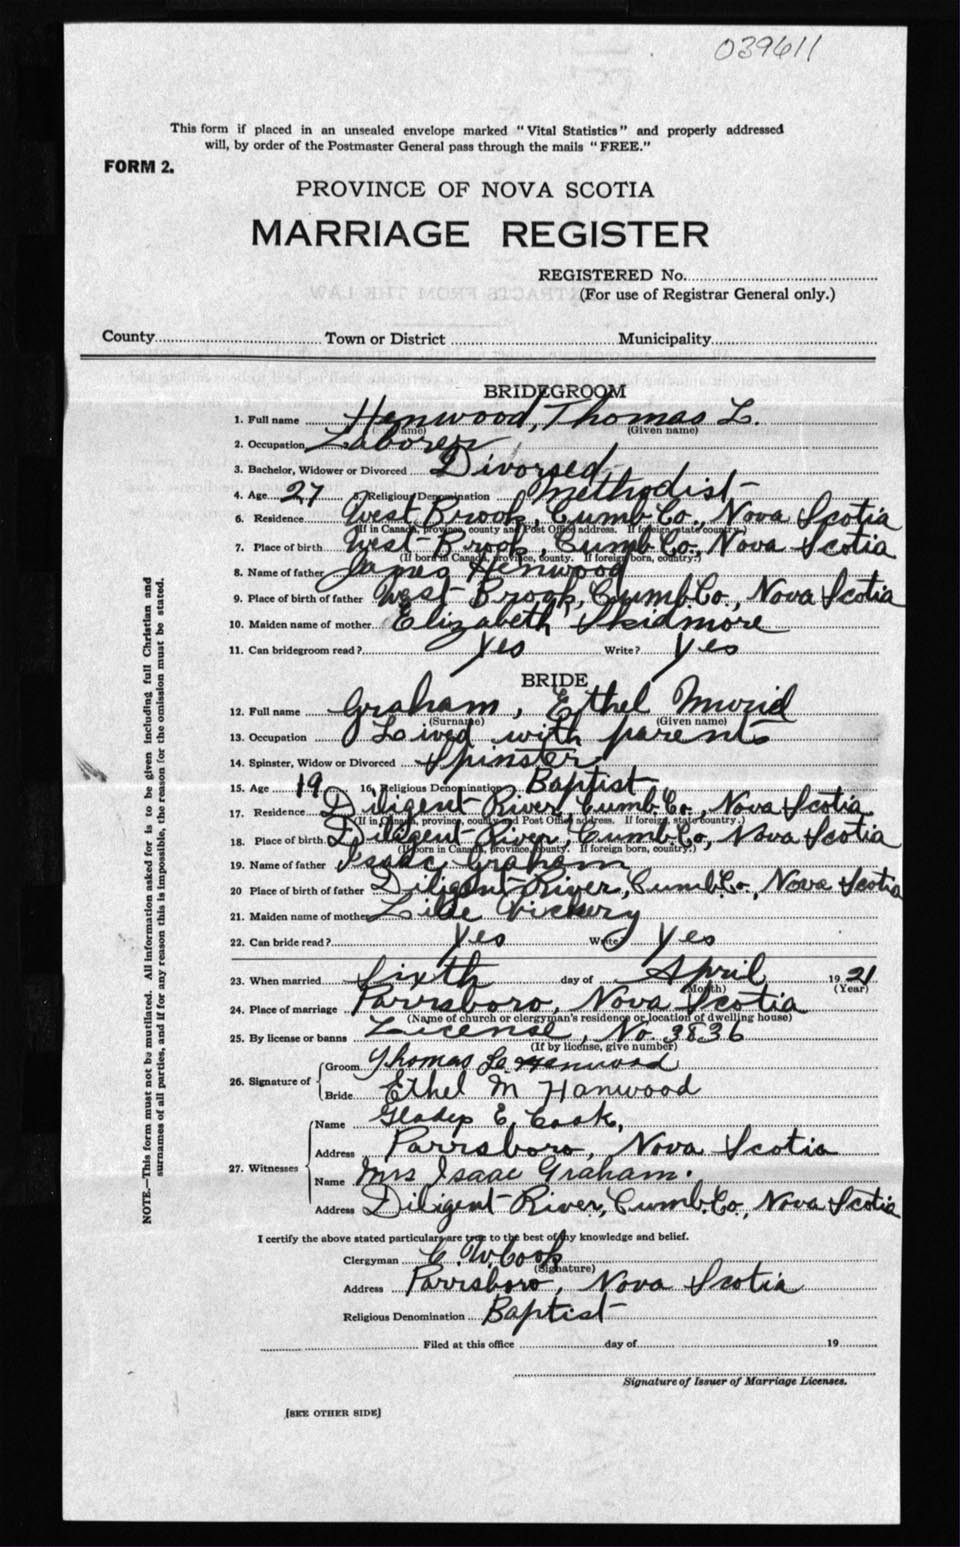 039611
This form if placed in an unsealed envelope marked "Vital Statistics" and properly addressed
will, by order of the Postmaster General pass through the mails "FREE."
FORM 2.
PROVINCE OF NOVA SCOTIA
MARRIAGE REGISTER
REGISTERED No.
(For use of Registrar General only.)
County Town or District Municipality
BRIDEGROOM
1. Full name Henwood, Thomas L.
(Surname) (Given name)
2. Occupation Laborer
3. Bachelor, Widower or Divorced Divorsed
4. Age 27 5. Religious Denomination Methodist
6. Residence West Brook, Cumb. Co., Nova Scotia
(If in Canada, province, county and Post Office address. If foreign, state country.)
7. Place of birth West Brook, Cumb. Co., Nova Scotia
(If born in Canada, province, county. If foreign born, country.)
8. Name of father James Henwood
9. Place of birth of father West Brook, Cumb. Co., Nova Scotia
10. Maiden name of mother Elizabeth Skidmore
11. Can bridegroom read? Yes Write? Yes
BRIDE
12. Full name Graham, Ethel
(Surname) (Given name)
13. Occupation Lived with parents
14. Spinster, Widow or Divorced Spinster
15. Age 19 16. Religious Denomination Baptist
17. Residence Diligent River, Cumb. Co., Nova Scotia
(If in Canada, province, county and Post Office address. If foreign, state country.)
18. Place of birth Diligent River, Cumb. Co., Nova Scotia
(If born in Canada, province, county. If foreign born, country.)
19. Name of father Isaac Graham
20 Place of birth of father Diligent River, Cumb. Co., Nova Scotia
21. Maiden name of mother Vickery
22. Can bride read? Yes Write? Yes
23. When married Sixth day of April 1921
(Month) (Year)
24. Place of marriage Parrsboro, Nova Scotia
(Name of church or clergyman's residence or location of dwelling house)
25. By license or banns License, No. 3836
(If by license, give number)
26. Signature of
Groom Thomas L. Henwood
Bride Ethel M Hanwood
27. Witnesses
Name Gladys E.
Address Parrsboro, Nova Scotia
Name Mrs Isaac Graham.
Address Diligent River, Cumb. Co., Nova Scotia
I certify the above stated particulars are true to the best of my knowledge and belief.
Clergyman C. W. Cook
(Signature)
Address Parrsboro, Nova Scotia
Religious Denomination Baptist
Filed at this office day of 19
Signature of Issuer of Marriage Licenses.
[SEE OTHER SIDE]
NOTE.—This form must not be mutilated. All information asked for is to be given including full Christian and
surnames of all parties, and if for any reason this is impossible, the reason for the omission must be stated.